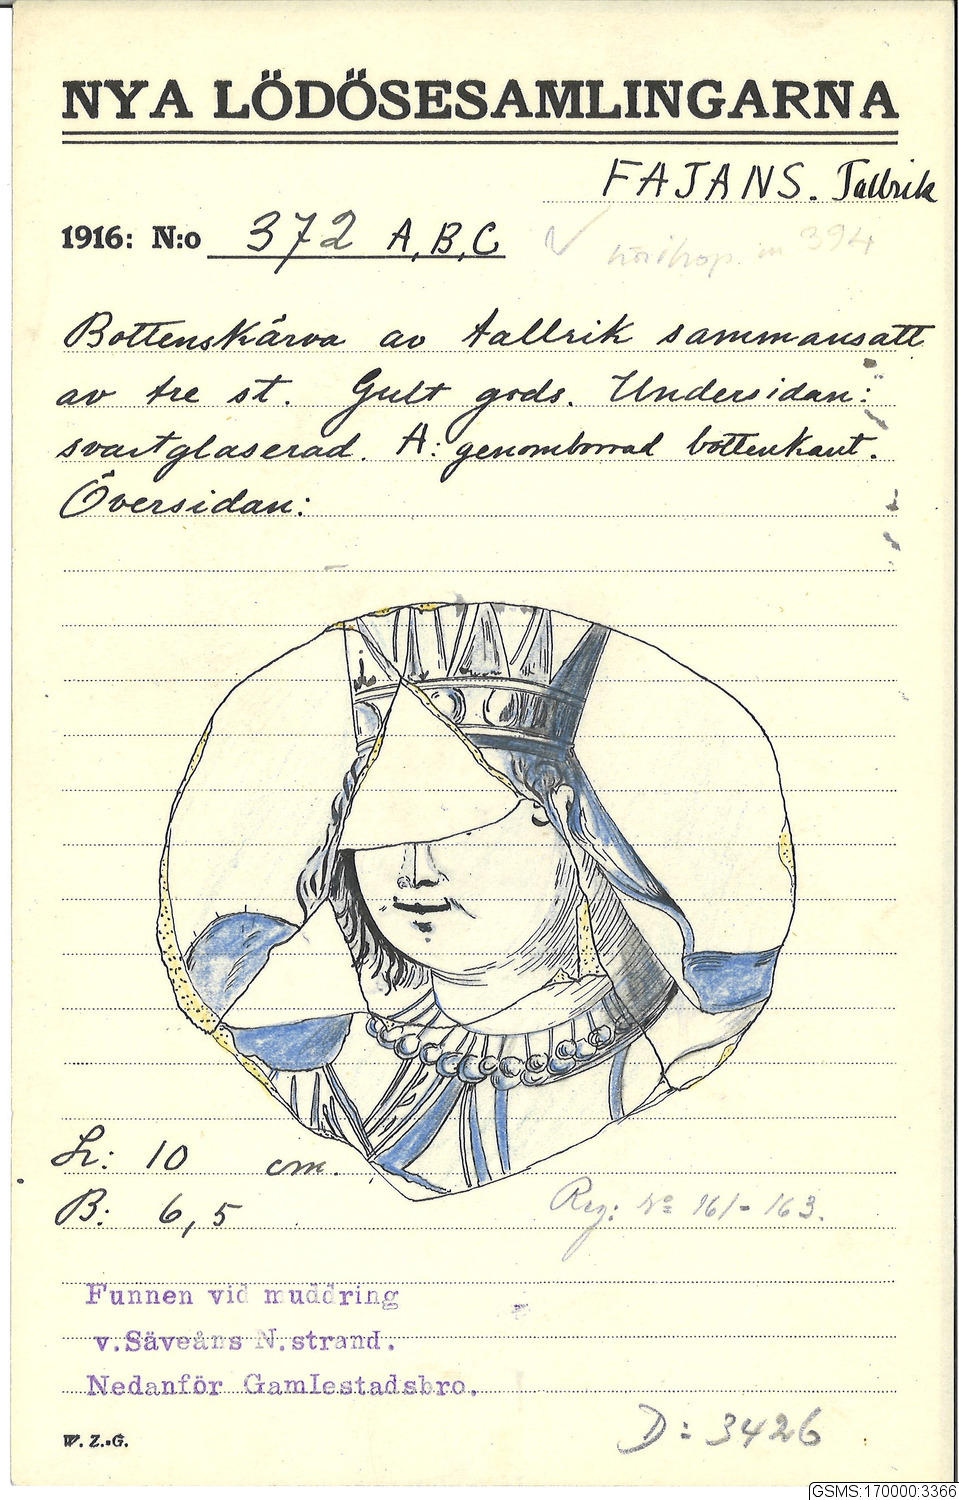 NYA LÖDÖSESAMLINGARNA
FAJANS. Tallrik
1916: N:o 372 A, B, C
m 394
Bottenskärva av tallrik sammansatt
av tre st. Gult gods. Undersidan:
svartglaserad. A: genomborrad bottenkant.
Översidan:
L: 10 cm.
B: 6,5
Reg: No 161-163.
Funnen vid muddring
v.Säveåns N.strand.
Nedanför Gamlestadsbro.
D: 3426
W. Z.-G.
GSMS:170000:3366